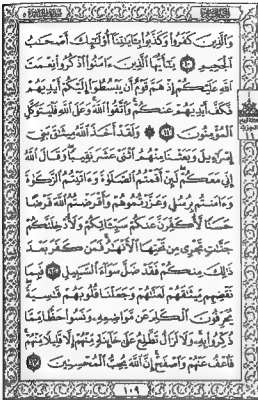 وَالَّذِينَ كَفَرُوا وَكَذَّبُوا بِآيَاتِنَا أُولَٰئِكَ أَصْحَابُ
الْجَحِيمِ ١٠ يَا أَيُّهَا الَّذِينَ آمَنُوا اذْكُرُوا نِعْمَتَ
اللَّهِ عَلَيْكُمْ إِذْ هَمَّ قَوْمٌ أَنْ يَبْسُطُوا إِلَيْكُمْ أَيْدِيَهُمْ
فَكَفَّ أَيْدِيَهُمْ عَنْكُمْ وَاتَّقُوا اللَّهَ وَعَلَى اللَّهِ فَلْيَتَوَكَّلِ
الْمُؤْمِنُونَ ١١ وَلَقَدْ أَخَذَ اللَّهُ مِيثَاقَ بَنِي
إِسْرَائِيلَ وَبَعَثْنَا مِنْهُمُ اثْنَيْ عَشَرَ نَقِيبًا وَقَالَ اللَّهُ
إِنِّي مَعَكُمْ لَئِنْ أَقَمْتُمُ الصَّلَاةَ وَآتَيْتُمُ الزَّكَاةَ
وَآمَنْتُمْ بِرُسُلِي وَعَزَّرْتُمُوهُمْ وَأَقْرَضْتُمُ اللَّهَ قَرْضًا
حَسَنًا لَأُكَفِّرَنَّ عَنْكُمْ سَيِّئَاتِكُمْ وَلَأُدْخِلَنَّكُمْ
جَنَّاتٍ تَجْرِي مِنْ تَحْتِهَا الْأَنْهَارُ فَمَنْ كَفَرَ بَعْدَ
ذَٰلِكَ مِنْكُمْ فَقَدْ ضَلَّ سَوَاءَ السَّبِيلِ ١٢ فَبِمَا
نَقْضِهِمْ مِيثَاقَهُمْ لَعَنَّاهُمْ وَجَعَلْنَا قُلُوبَهُمْ قَاسِيَةً
يُحَرِّفُونَ الْكَلِمَ عَنْ مَوَاضِعِهِ وَنَسُوا حَظًّا مِمَّا
ذُكِّرُوا بِهِ وَلَا تَزَالُ تَطَّلِعُ عَلَىٰ خَائِنَةٍ مِنْهُمْ إِلَّا قَلِيلًا مِنْهُمْ
فَاعْفُ عَنْهُمْ وَاصْفَحْ إِنَّ اللَّهَ يُحِبُّ الْمُحْسِنِينَ ١٣
١٠٩